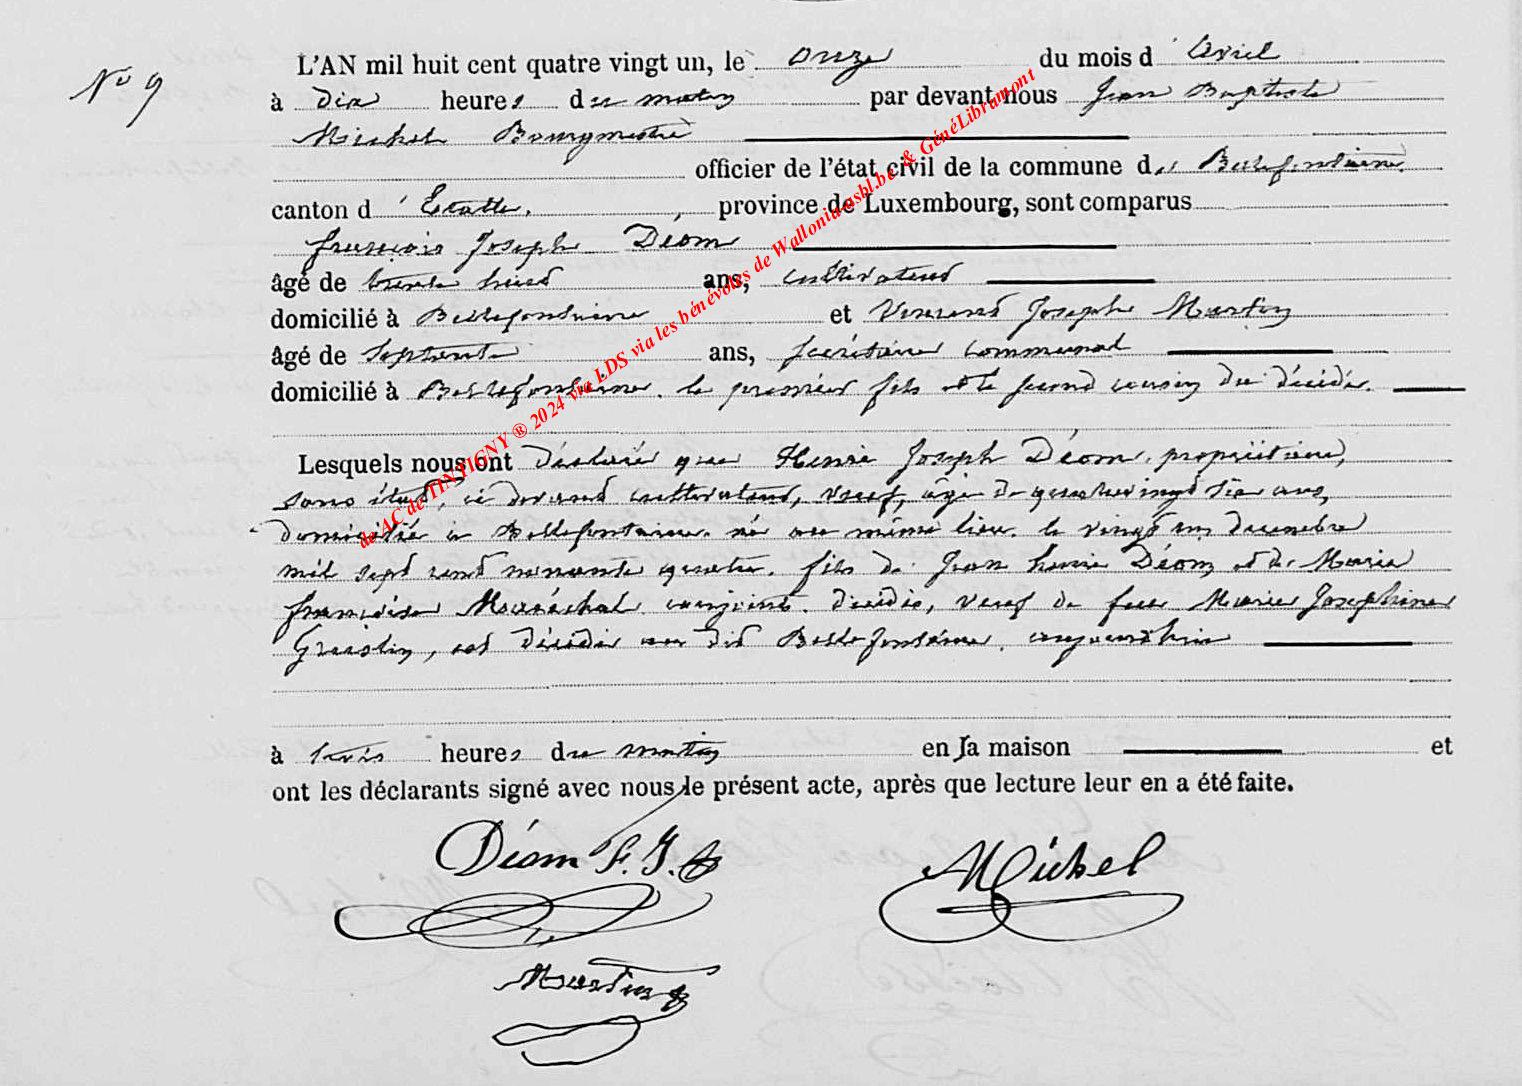 No 9
L'AN mil huit cent quatre vingt un, le onze du mois d'avril
à dix heures du matin par devant nous Jean Baptiste
Michel Bourgmestre
officier de l'état civil de la commune de Bellefontaine,
canton d'Etalle, province de Luxembourg, sont comparus
françois Joseph Déom
âgé de trente huit ans, cultivateur
domicilié à Bellefontaine et Vincent Joseph Martin
âgé de septante ans, secrétaire communal
domicilié à Bellefontaine, le premier fils et le second cousin du décédé.
Lesquels nous ont déclaré que Henri Joseph Déom, propriétaire,
sans état, ci devant cultivateur, veuf, âgé de quatrevingt six ans,
domicilié à Bellefontaine, né au même lieu, le vingt un decembre
mil sept cent nonante quatre, fils de Jean henri Déom et de Marie
françoise Maréchal conjoints décédés, veuf de feue Marie Josephine
est décédé au dit Bellefontaine, aujourd'hui
à trois heures du matin en la maison et
ont les déclarants signé avec nous le présent acte, après que lecture leur en a été faite.
Déom F. J.
Michel
Martin
de AC de TINTIGNY ® 2024 via LDS via les bénévoles de Walloniaasbl.be & GénéLibramont